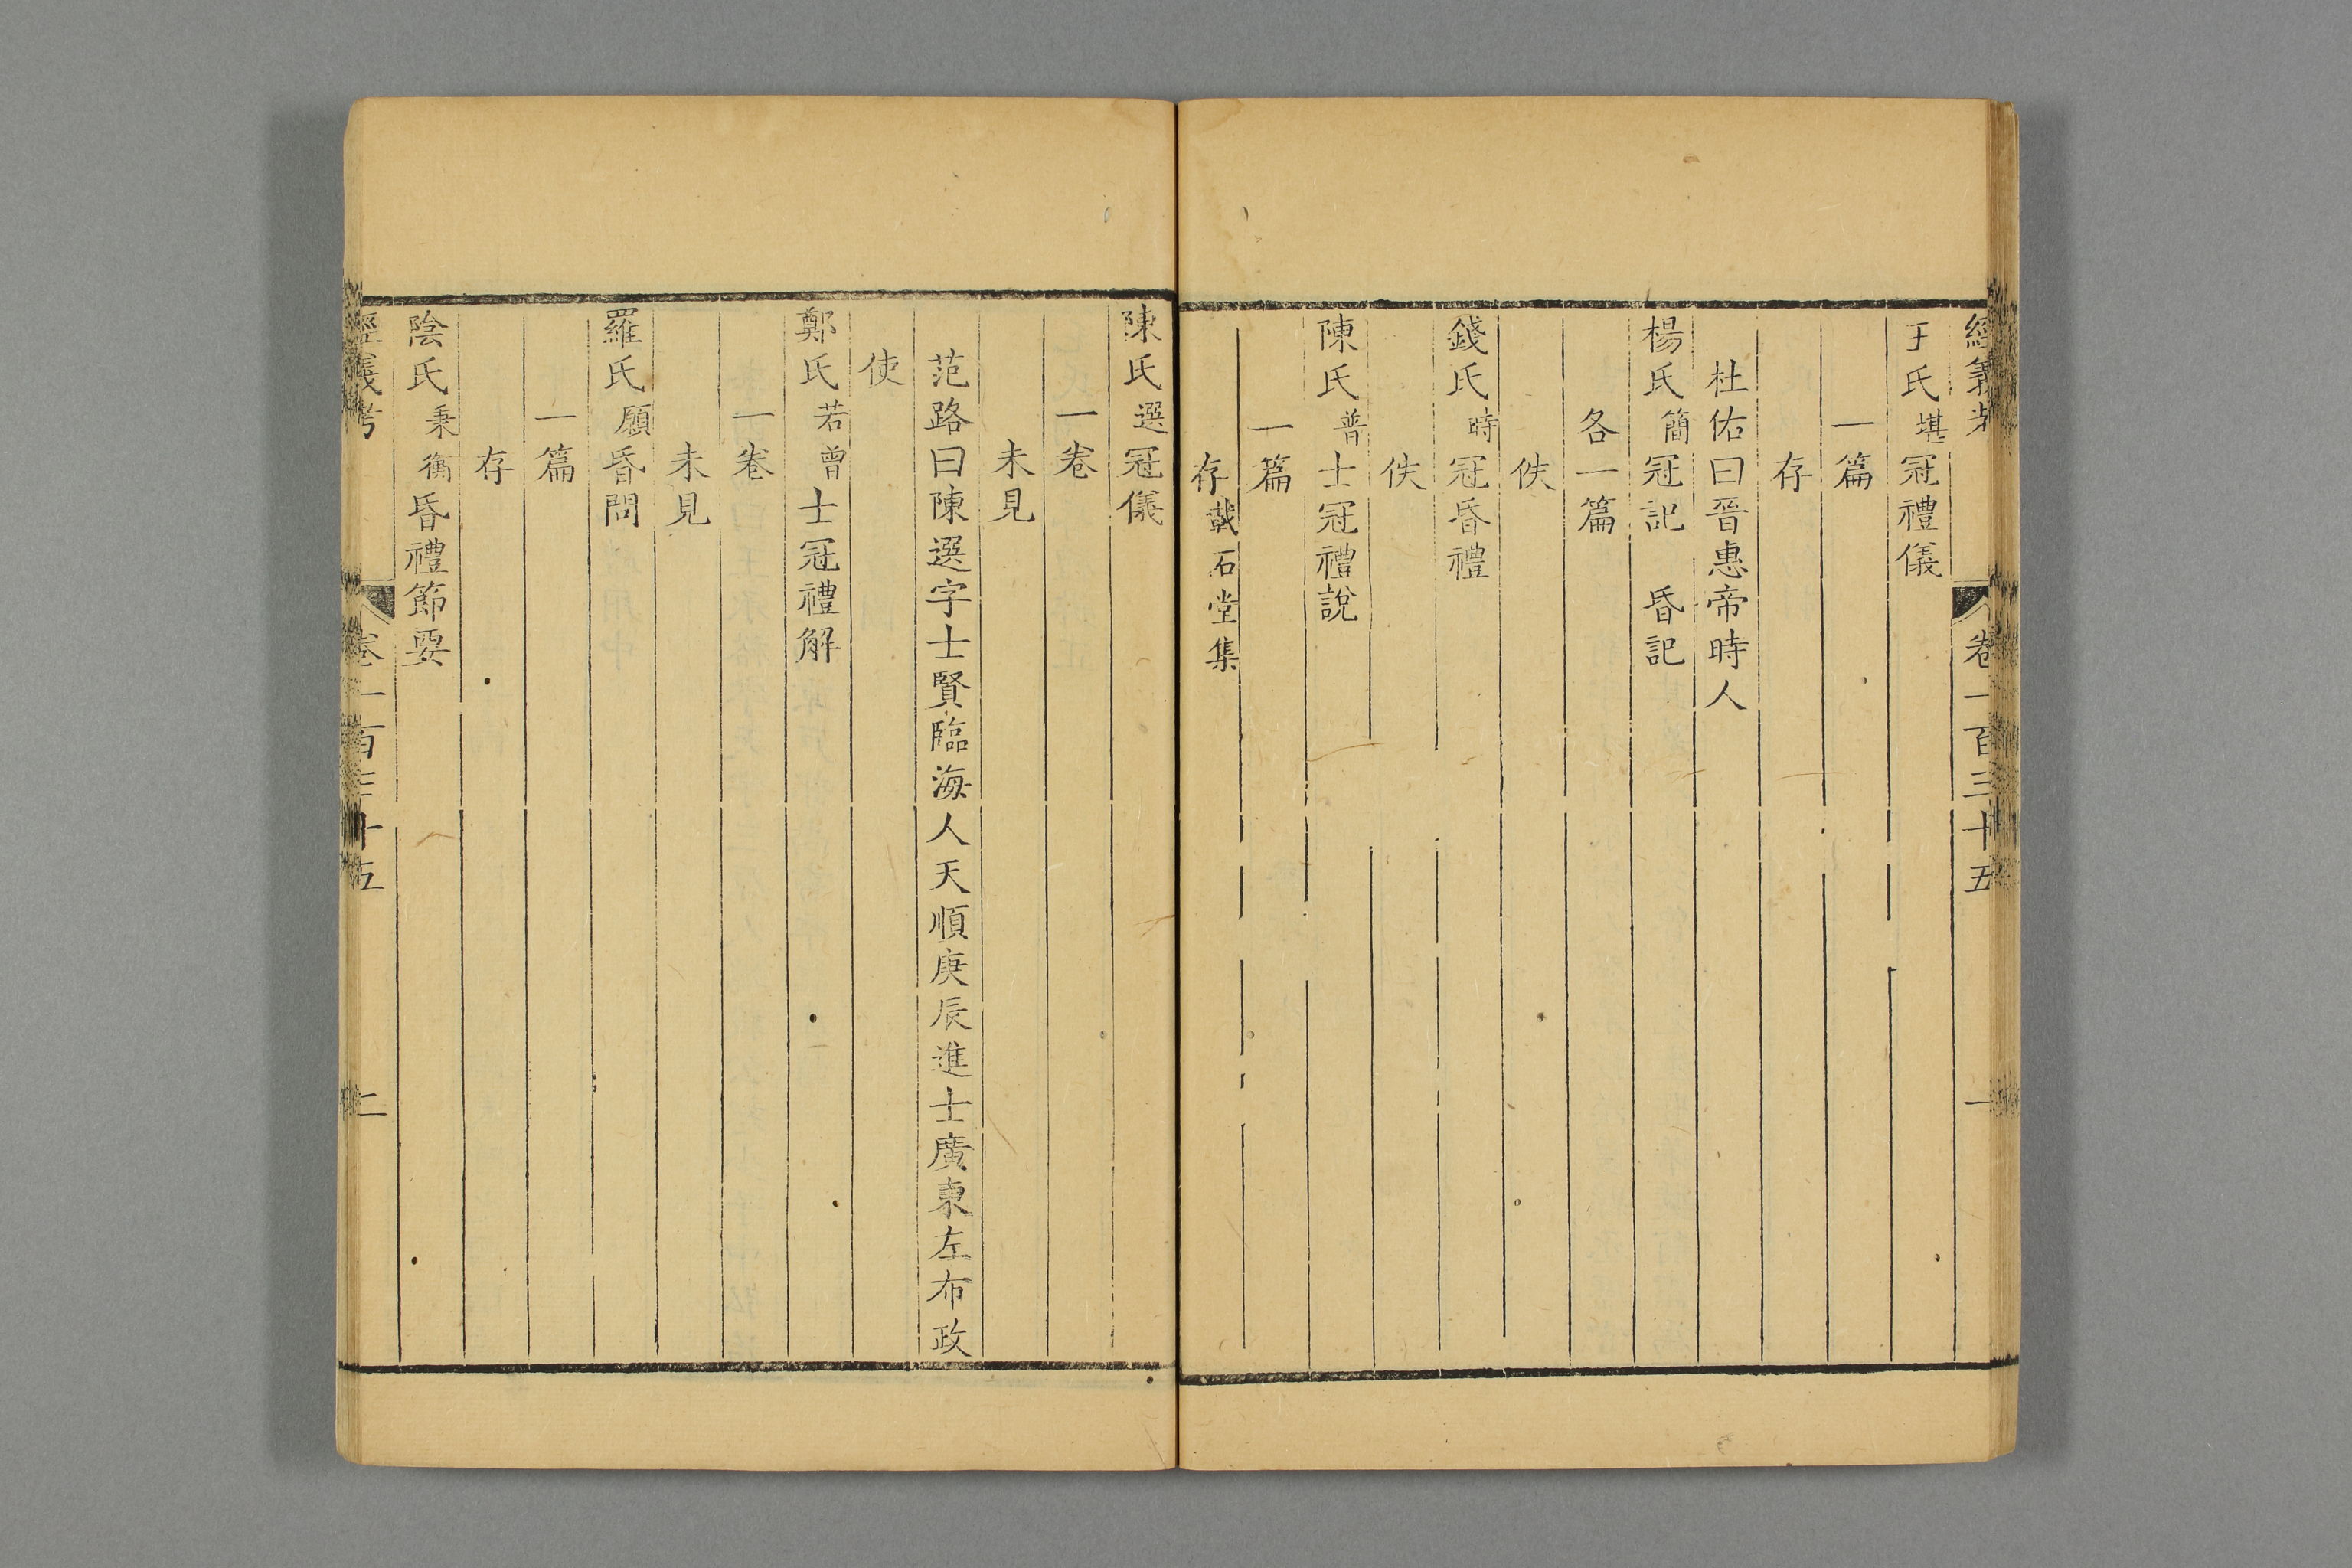 經義考 卷一百三十五 一
王氏堪冠禮儀
一篇
存
杜佑曰晉惠帝時人
楊氏簡冠記 昏記
各一篇
佚
錢氏時冠昏禮
佚
陳氏普士冠禮說
一篇
存載石堂集
陳氏選冠儀
一卷
未見
范路曰陳選字士賢臨海人天順庚辰進士廣東左布政
使
鄭氏若曾士冠禮解
一卷
未見
羅氏願昏問
一篇
存
陰氏秉衡昏禮節要
經義考 卷一百三十五 二